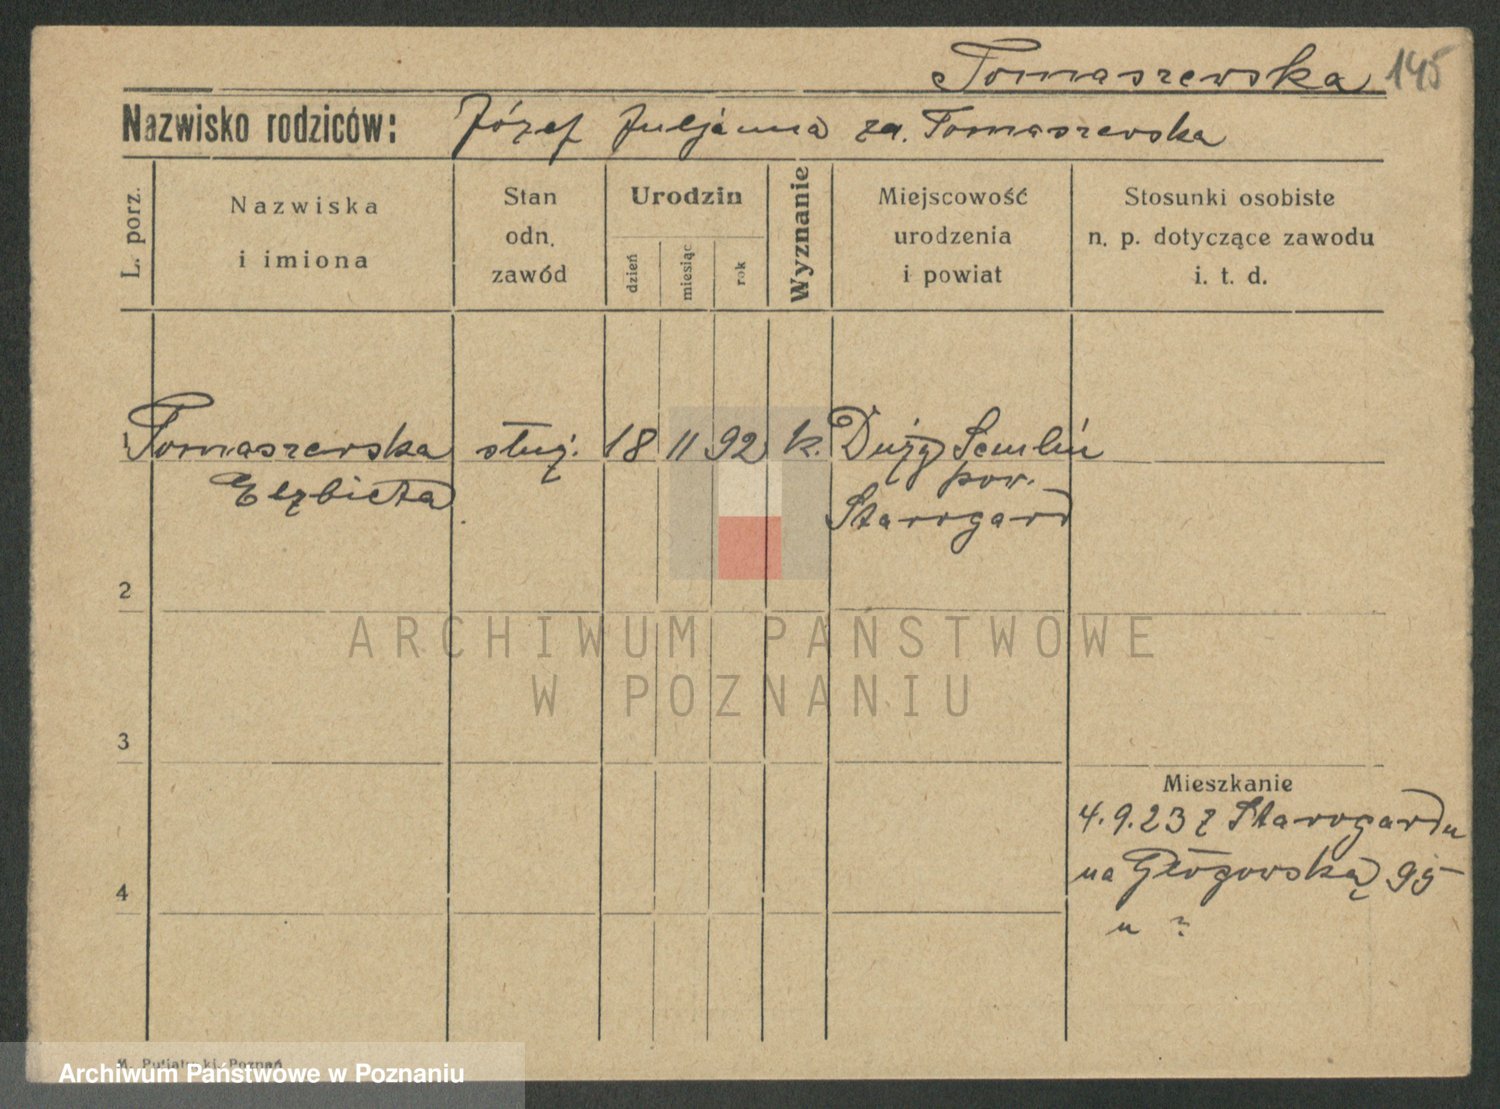 Tomaszewska 145
Nazwisko rodziców: Józef Juljanna za. Tomaszewska
L. porz.
Nazwiska
i imiona
Stan
odn.
zawód
Urodzin
dzień
miesiąc
rok
Wyznanie
Miejscowość
urodzenia
i powiat
Stosunki osobiste
n. p. dotyczące zawodu
i. t. d.
1 Tomaszewska służ. 18 11 92 k. Duży Semlin
Elżbieta pow.
Starogard
2
ARCHIWUM PAŃSTWOWE
W POZNANIU
3
Mieszkanie
4.9.23 z Starogardu
na Głogowską 95
4
u ?
Archiwum Państwowe w Poznaniu